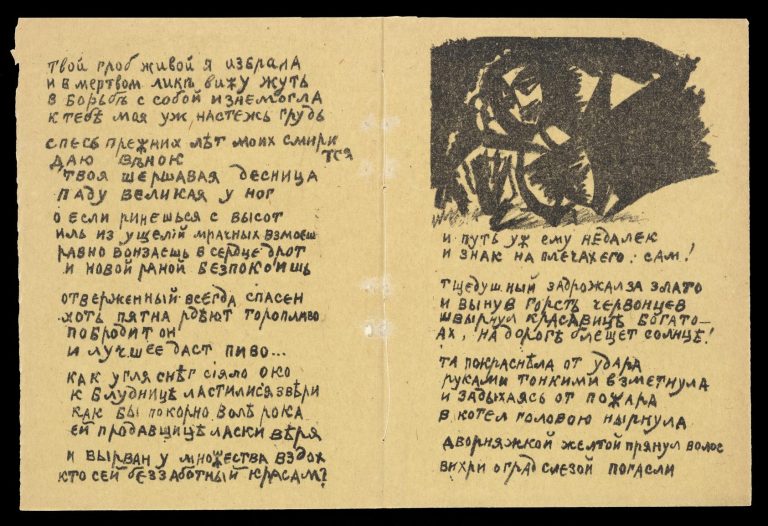 твой гроб живой я избрала
и в мертвом ликѣ вижу жуть
в борьбѣ с собой изнемогла
к тебѣ моя уж настежь грудь
спесь прежних лѣт моих смирится
даю вѣнок
твоя шершавая десница
паду великая у ног
о если ринешься с высот
иль из ущелiй мрачных взмоеш
равно вонзаешь в сердце дрот
и новой раной безпокоишь
отверженный всегда спасен
хоть пятна рдѣют торопливо
побродит он
и лучшее даст пиво...
как угля снѣг сiяло око
к блудницѣ ластилися звѣри
как бы покорно волѣ рока
ей продавщицѣ ласки вѣря
и вырван у множества вздох
кто сей беззаботный красам?
и путь уж ему недалек
и знак на плечах его: сам!
тщедушный задрожал за злато
и вынув горсть червонцев
швырнул красавицѣ богато—
ах, на дорогѣ блещет солнце!
та покраснѣла от удара
руками тонкими взметнула
и задыхаясь от пожара
в котел головою нырнула
дворняжкой желтой прянул волос
вихри оград слезой погасли